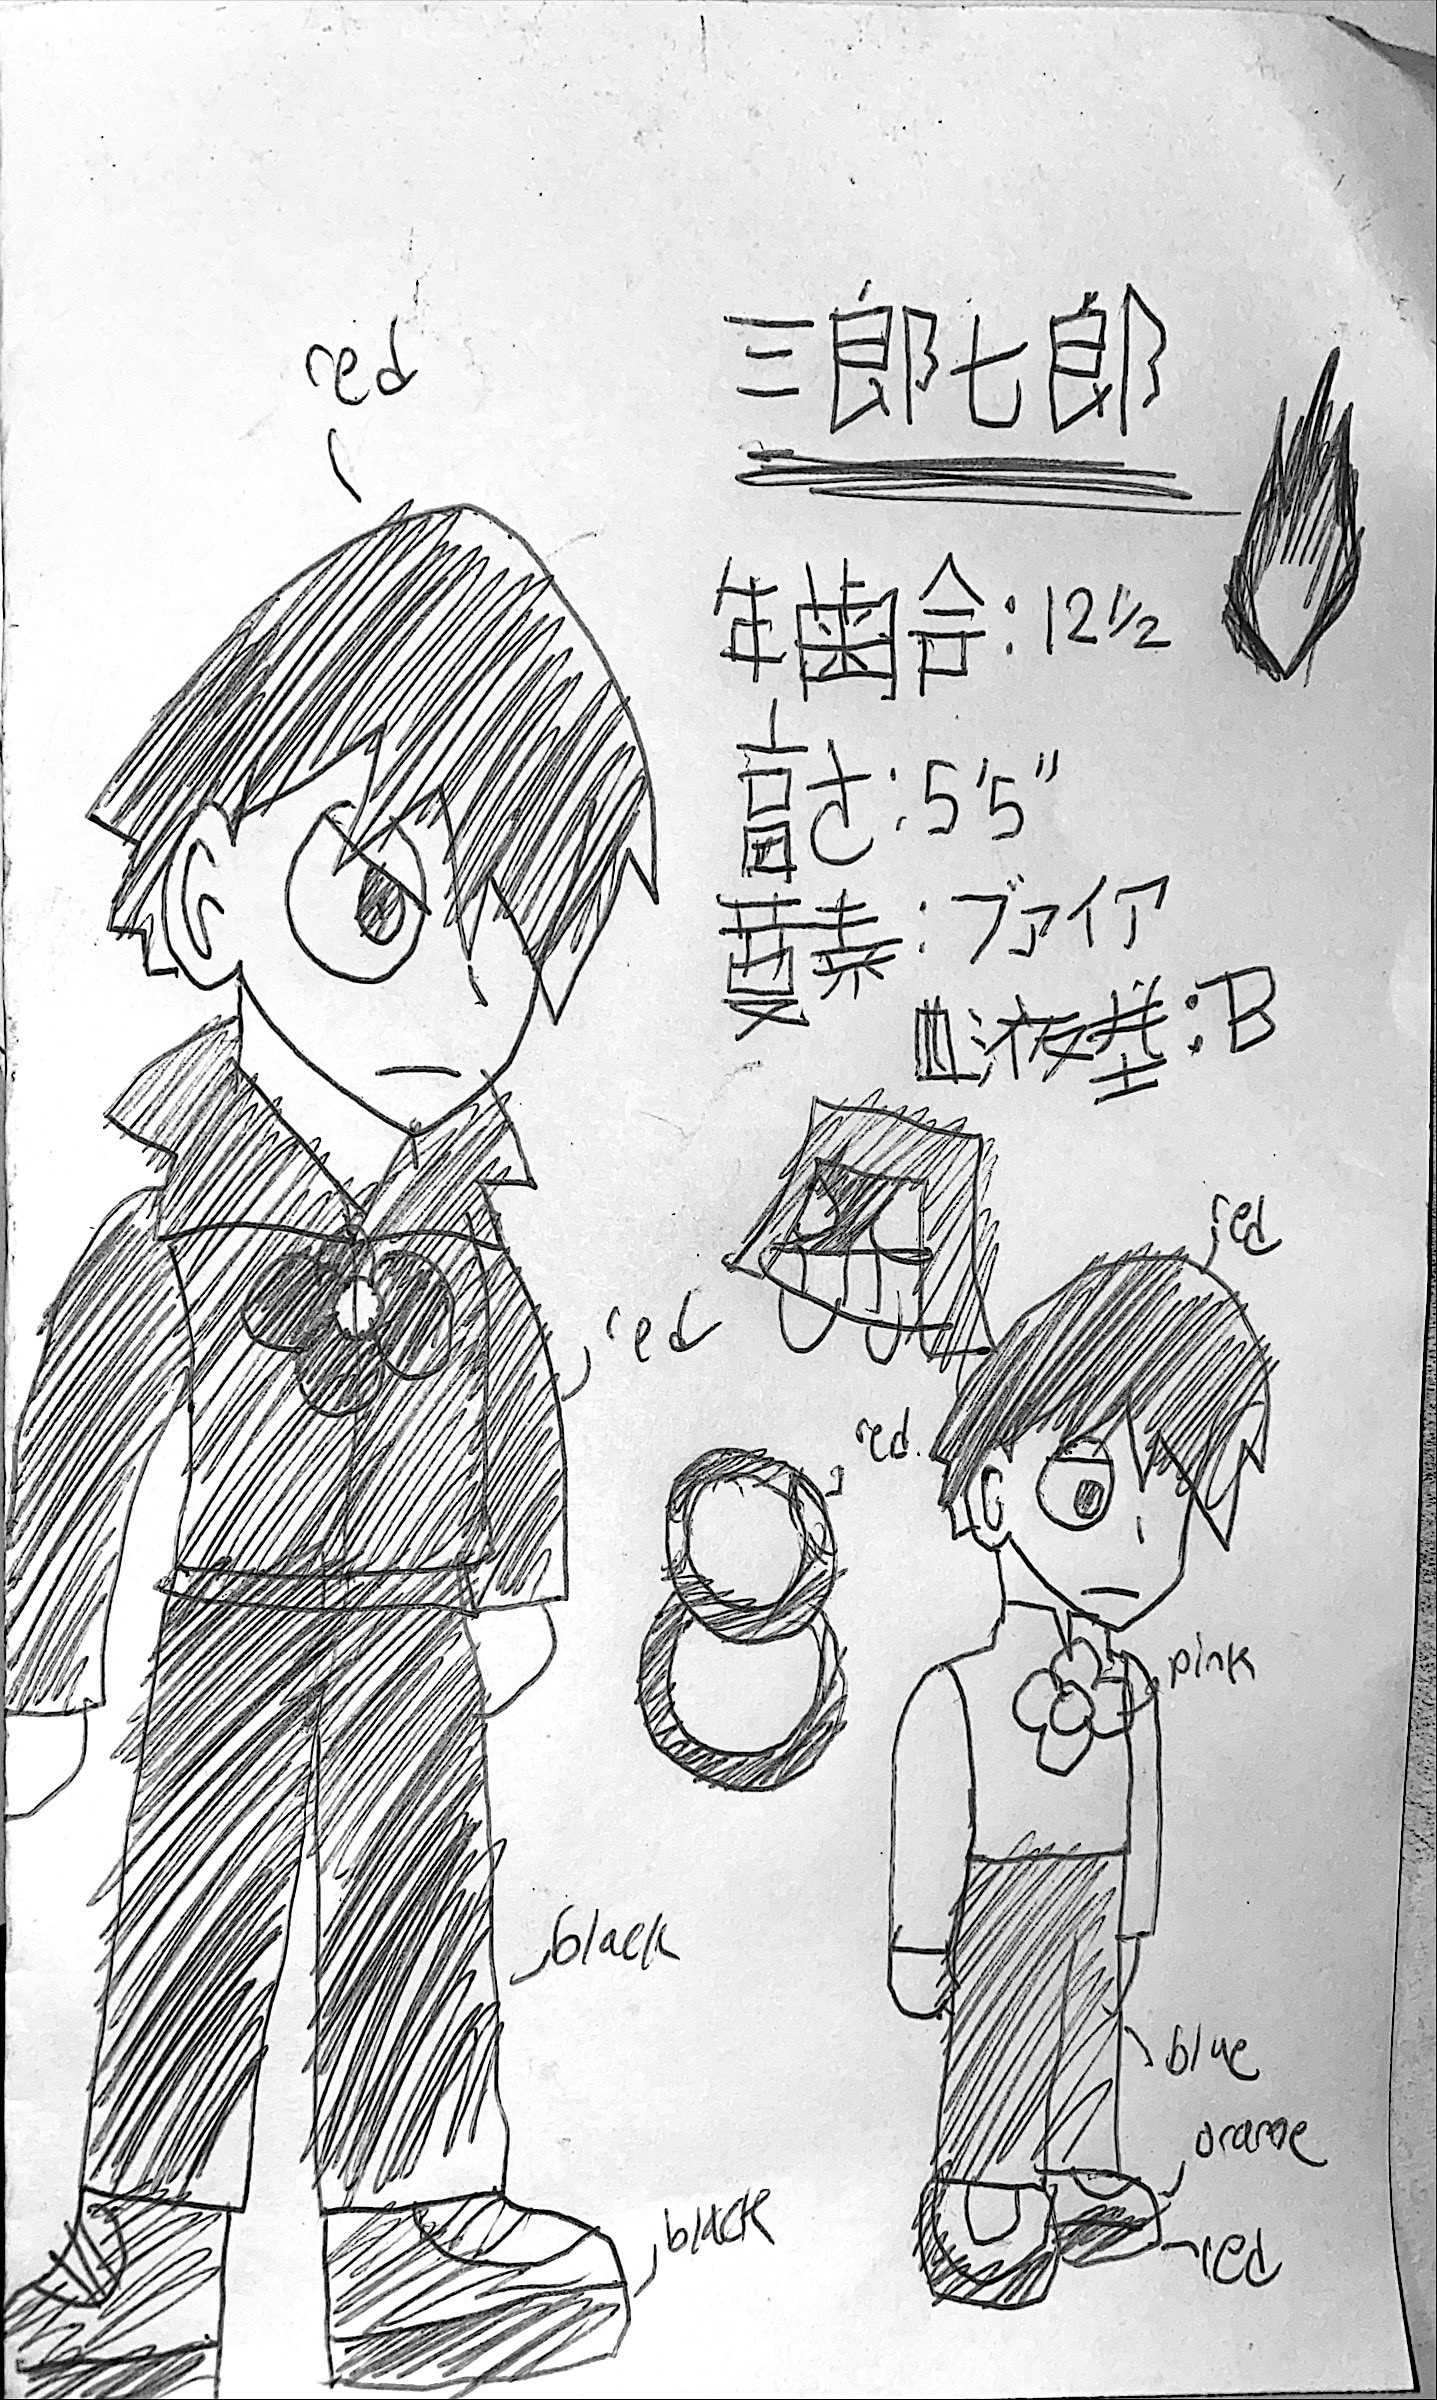 三郎七郎
red
年歯合: 12 1/2
高さ: 5'5"
要素: ブァイア
血液型: B
red
red
red.
pink
black
blue
orange
black
red